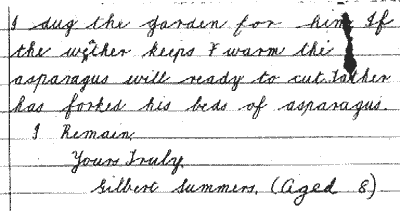 I dug the garden for him If
the wether keeps & warm the
asparagus will ready to cut. Father
has forked his beds of asparagus.
I Remain,
Yours Truly
Gilbert Summers, (Aged 8)